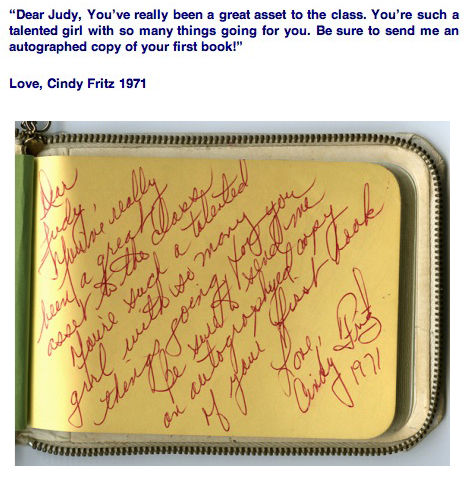 “Dear Judy, You’ve really been a great asset to the class. You’re such a
talented girl with so many things going for you. Be sure to send me an
autographed copy of your first book!”
Love, Cindy Fritz 1971
Dear
Judy,
You've really
been a great
asset to the classe
You're such a talented
girl with so many
things going for you
Be sure to send me
an autographed copy
of your first book
Love,
Cindy Fritz
1971